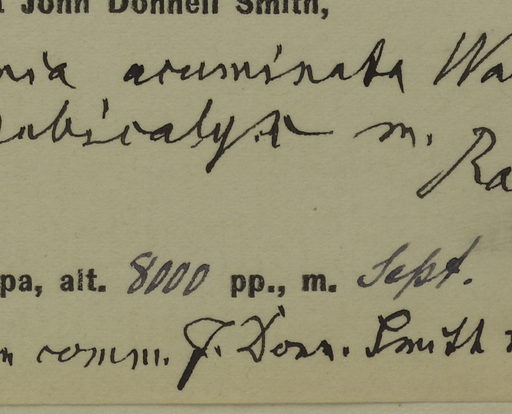 John Donnell Smith,
nia acuminata Wa
labicalyx m.
Ra
pa, alt. 8000 pp., m. Sept.
n comm. J. Donn. Smith